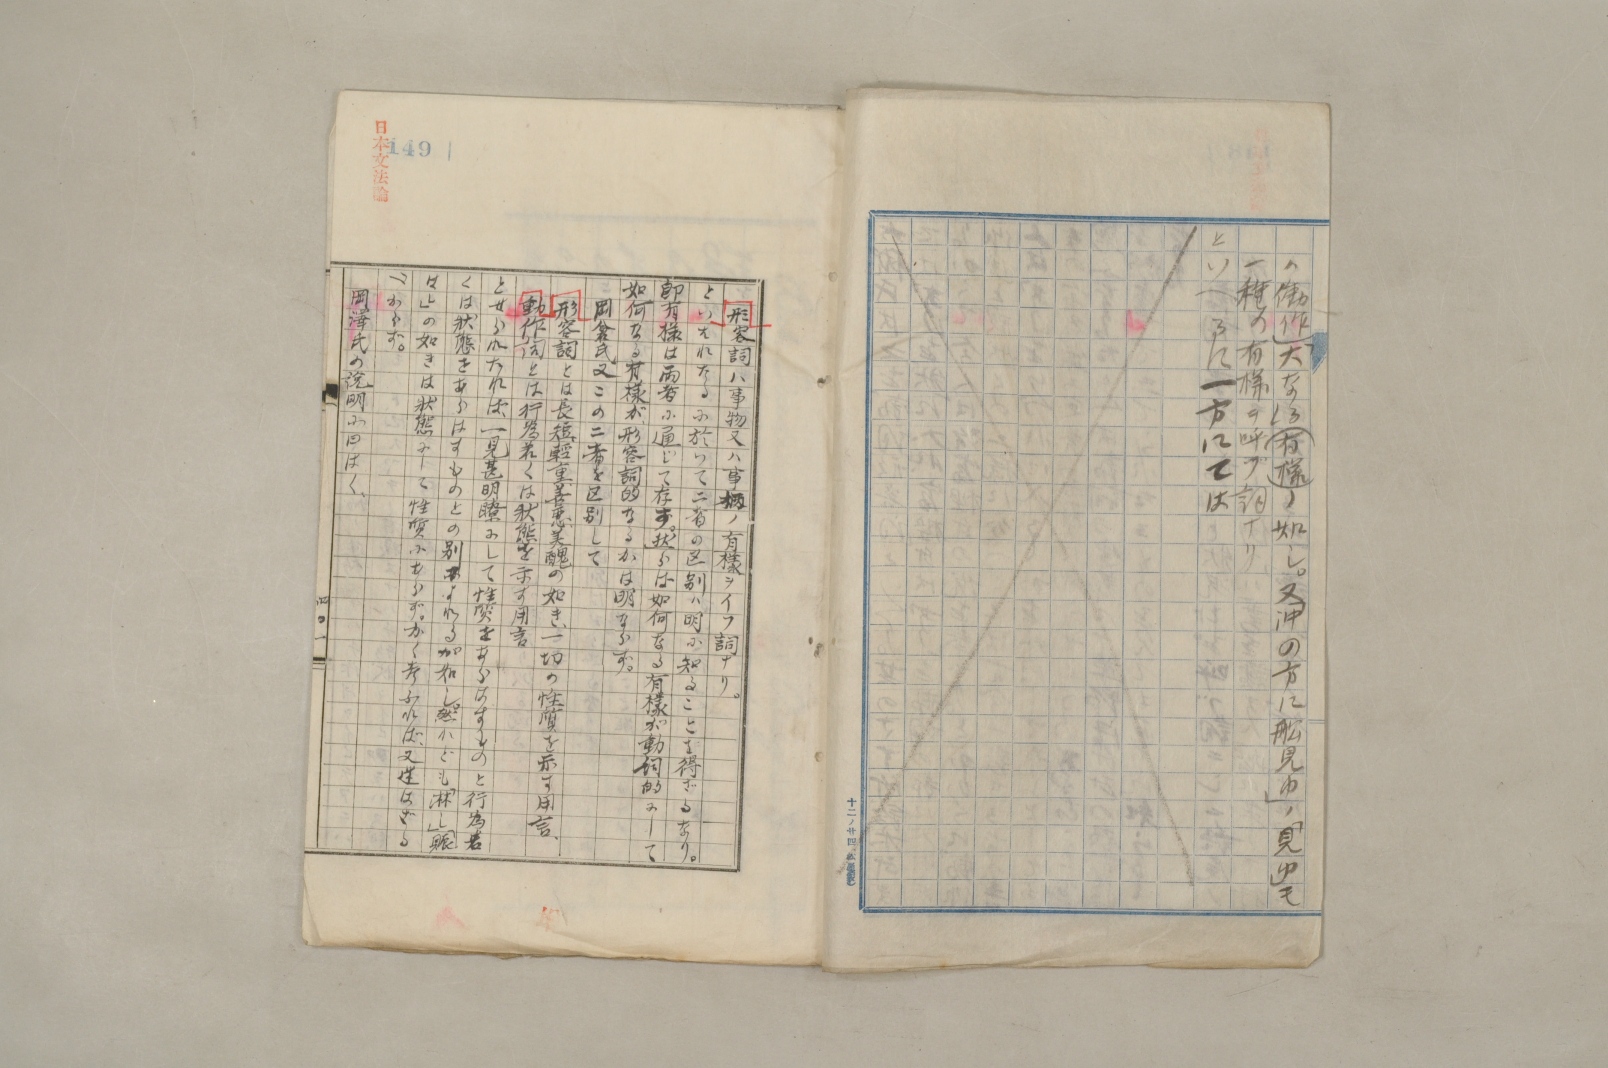 ハ働作」大なる有樣ノ如シ。又「沖の方に舩見ゆ」ノ「見ゆ」モ
一種の有樣ヲ呼ブ詞ナリ
といへるに一方にては
十二ノ廿四
149
日本文法論
形容詞ハ事物又ハ事柄ノ有樣ヲイフ詞ナリ。
といはれたるに於いて二者の区別ハ明に知ることを得ざるなり。
即有樣は両者に通じて存す。然らば如何なる有樣が動詞的にして
如何なる有樣が形容詞的なるかは明ならず。
岡倉氏又この二者を区別して
形容詞とは長短、輕重、善惡、美醜の如き、一切の性質を示す用言、
動作詞とは行為若くは状態を示す用言
とせられたれば、一見甚明瞭にして性質をあらはすものと行為若
くは状態をあらはすものとの別あるが如し。然れども「淋し」「賑
は」の如きは状態にして性質にあらず。かく考ふれば、又從はざる
べからず。
岡澤氏の説明に曰はく、
四〇一